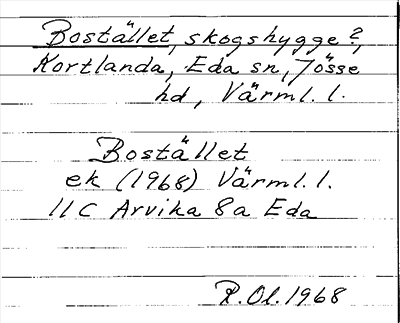 Bostället, skogshygge?,
Kortlanda, Eda sn, Jösse
hd, Värml. l.
Bostället
ek (1968) Värml. l.
11C Arvika 8a Eda
R.Ol. 1968